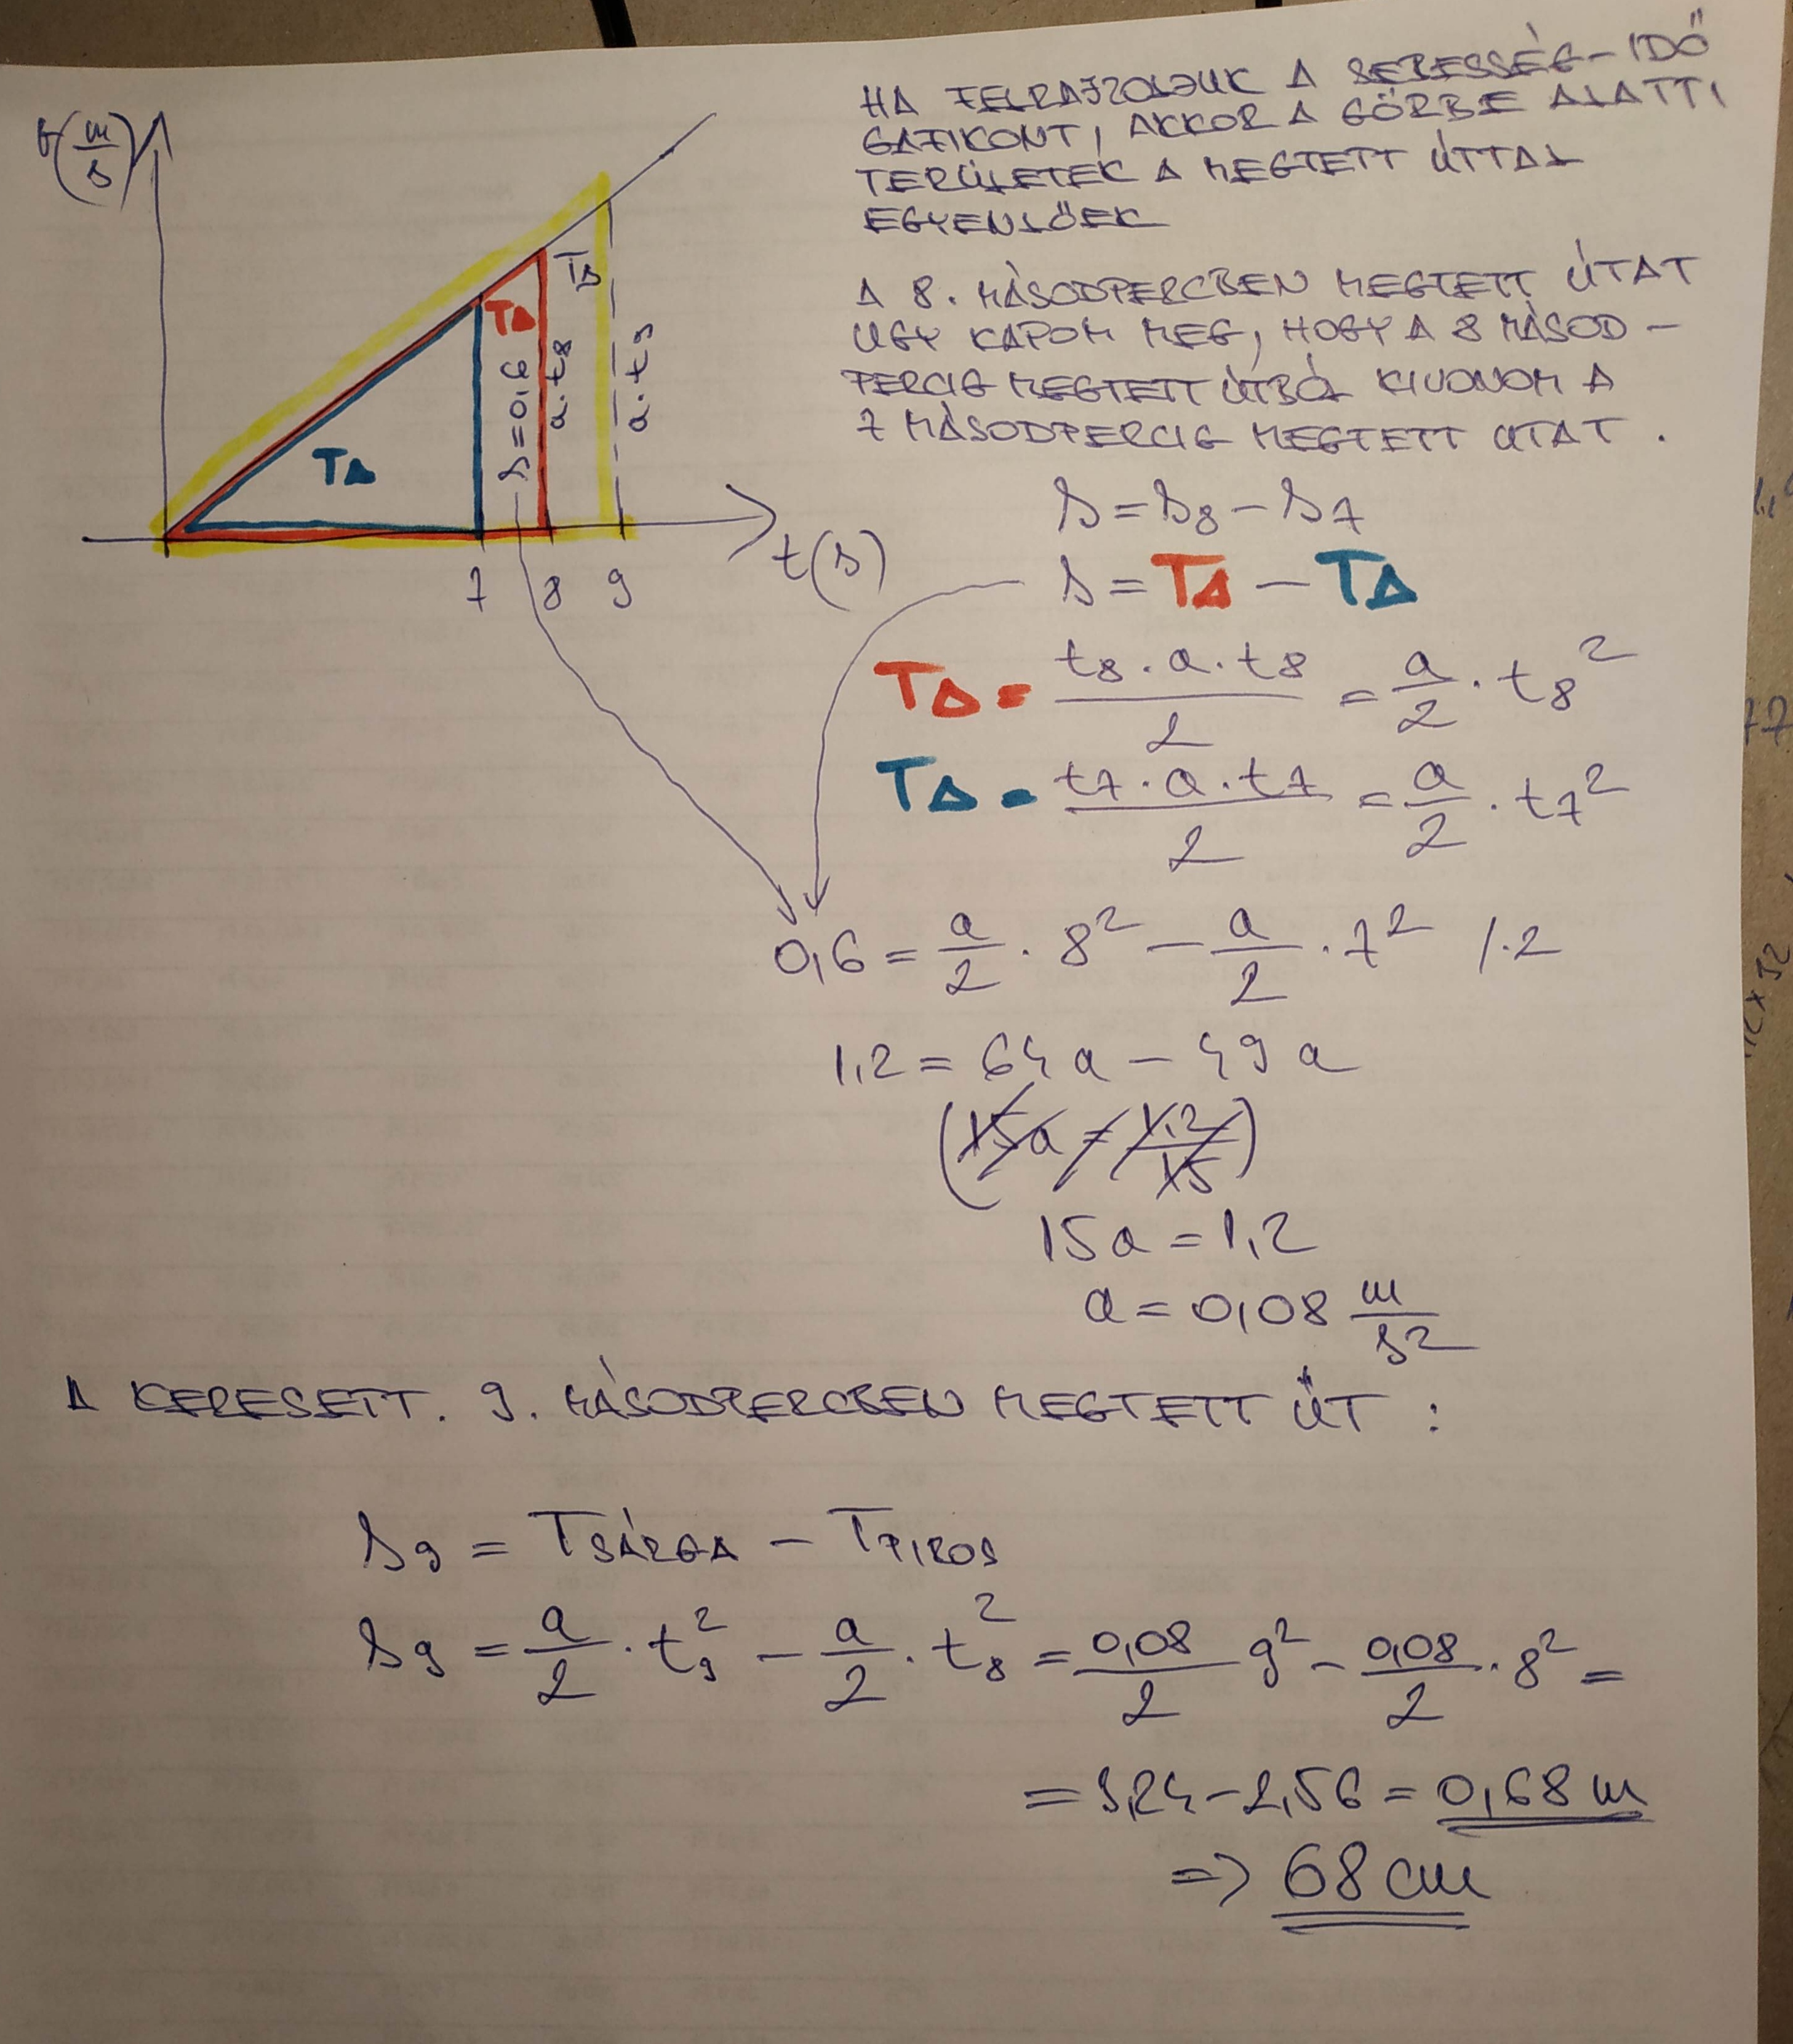 HA FELRAJZOLJUK A SEBESSÉG-IDŐ
GAFIKONT, AKKOR A GÖRBE ALATTI
TERÜLETEK A MEGTETT ÚTTAL
EGYENLŐEK
v(m/s)
T∆
T∆
T∆
s=0,6
a·t8
a·t9
7 8 9
t(s)
A 8. MÁSODPERCBEN MEGTETT ÚTAT
UGY KAPOM MEG, HOGY A 8 MÁSOD-
PERCIG MEGTETT ÚTBÓL KIVONOM A
7 MÁSODPERCIG MEGTETT UTAT.
s = s8 - s7
s = T∆ - T∆
T∆ = t8·a·t8/2 = a/2 · t8²
T∆ = t7·a·t7/2 = a/2 · t7²
0,6 = a/2 · 8² - a/2 · 7² /·2
1,2 = 64a - 49a
(15a = 1,2/15)
15a = 1,2
a = 0,08 m/s²
A KERESETT. 9. MÁSODPERCBEN MEGTETT ÚT:
s9 = TSÁRGA - TPIROS
s9 = a/2 · t9² - a/2 · t8² = 0,08/2 9² - 0,08/2 · 8² =
= 3,24 - 2,56 = 0,68 m
=> 68 cm